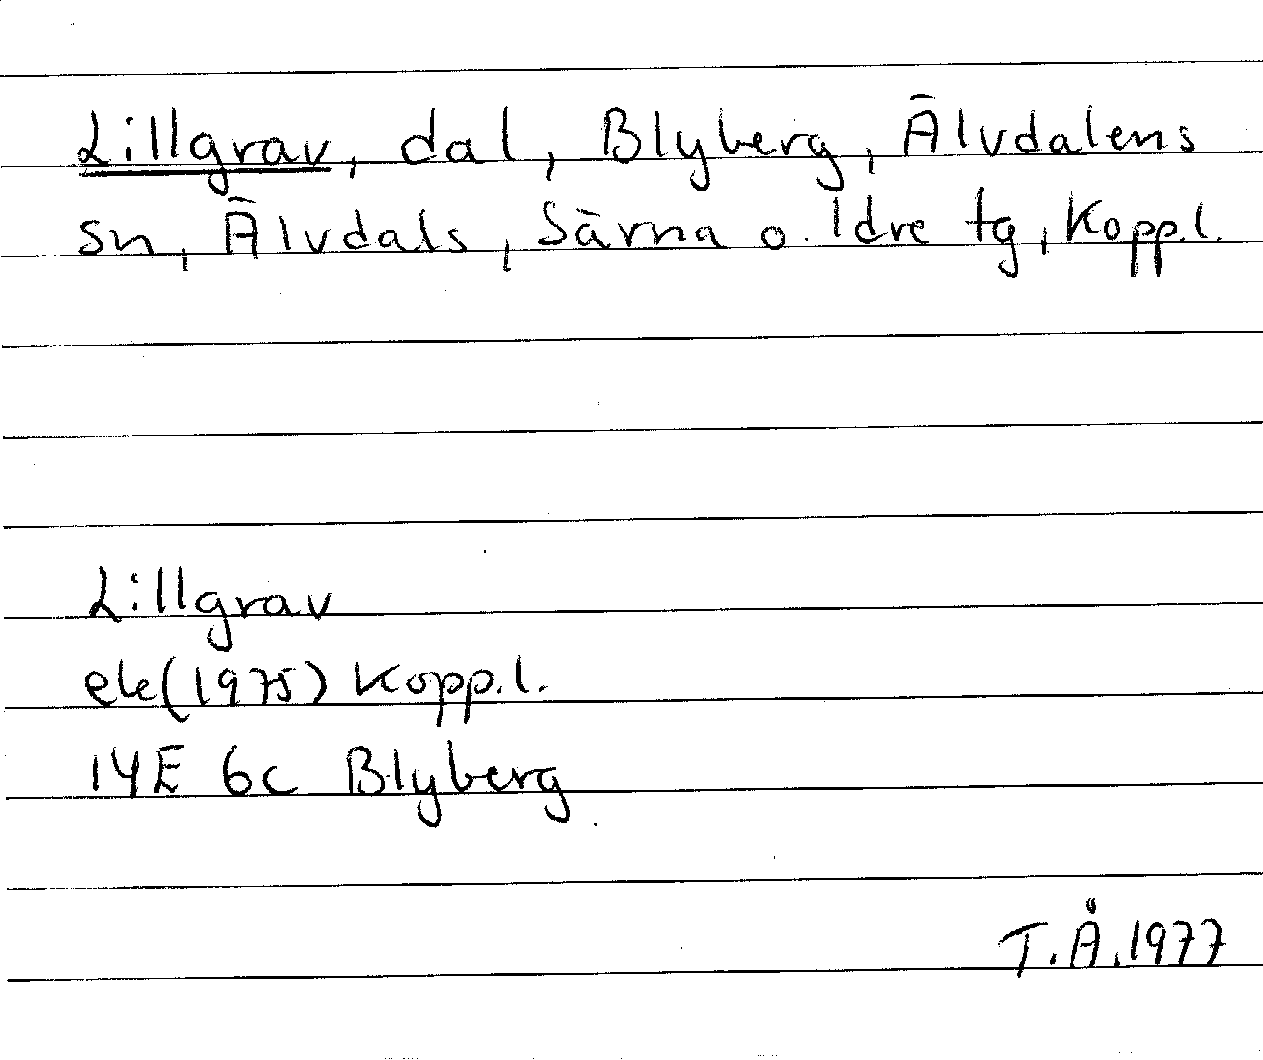 Lillgrav, dal, Blyberg, Älvdalens
sn, Älvdals, Särna o. Idre tg, Kopp.l.
Lillgrav
ek (1975) Kopp.l.
14E 6c Blyberg
T.Å.1977